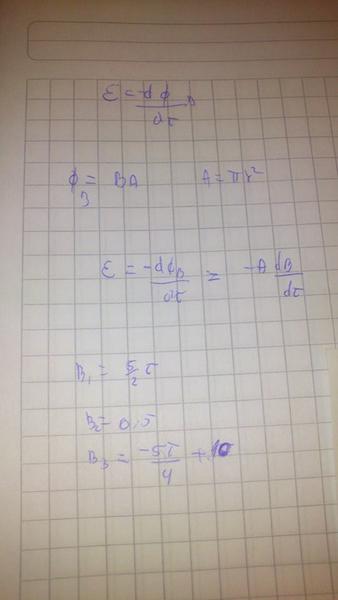 ε = -dϕ_B / dt
ϕ_B = BA A = πr²
ε = -dϕ_B / dt = -A dB / dt
B₁ = 5/2 t
B₂ = 0,5
B₃ = -5t / 4 +